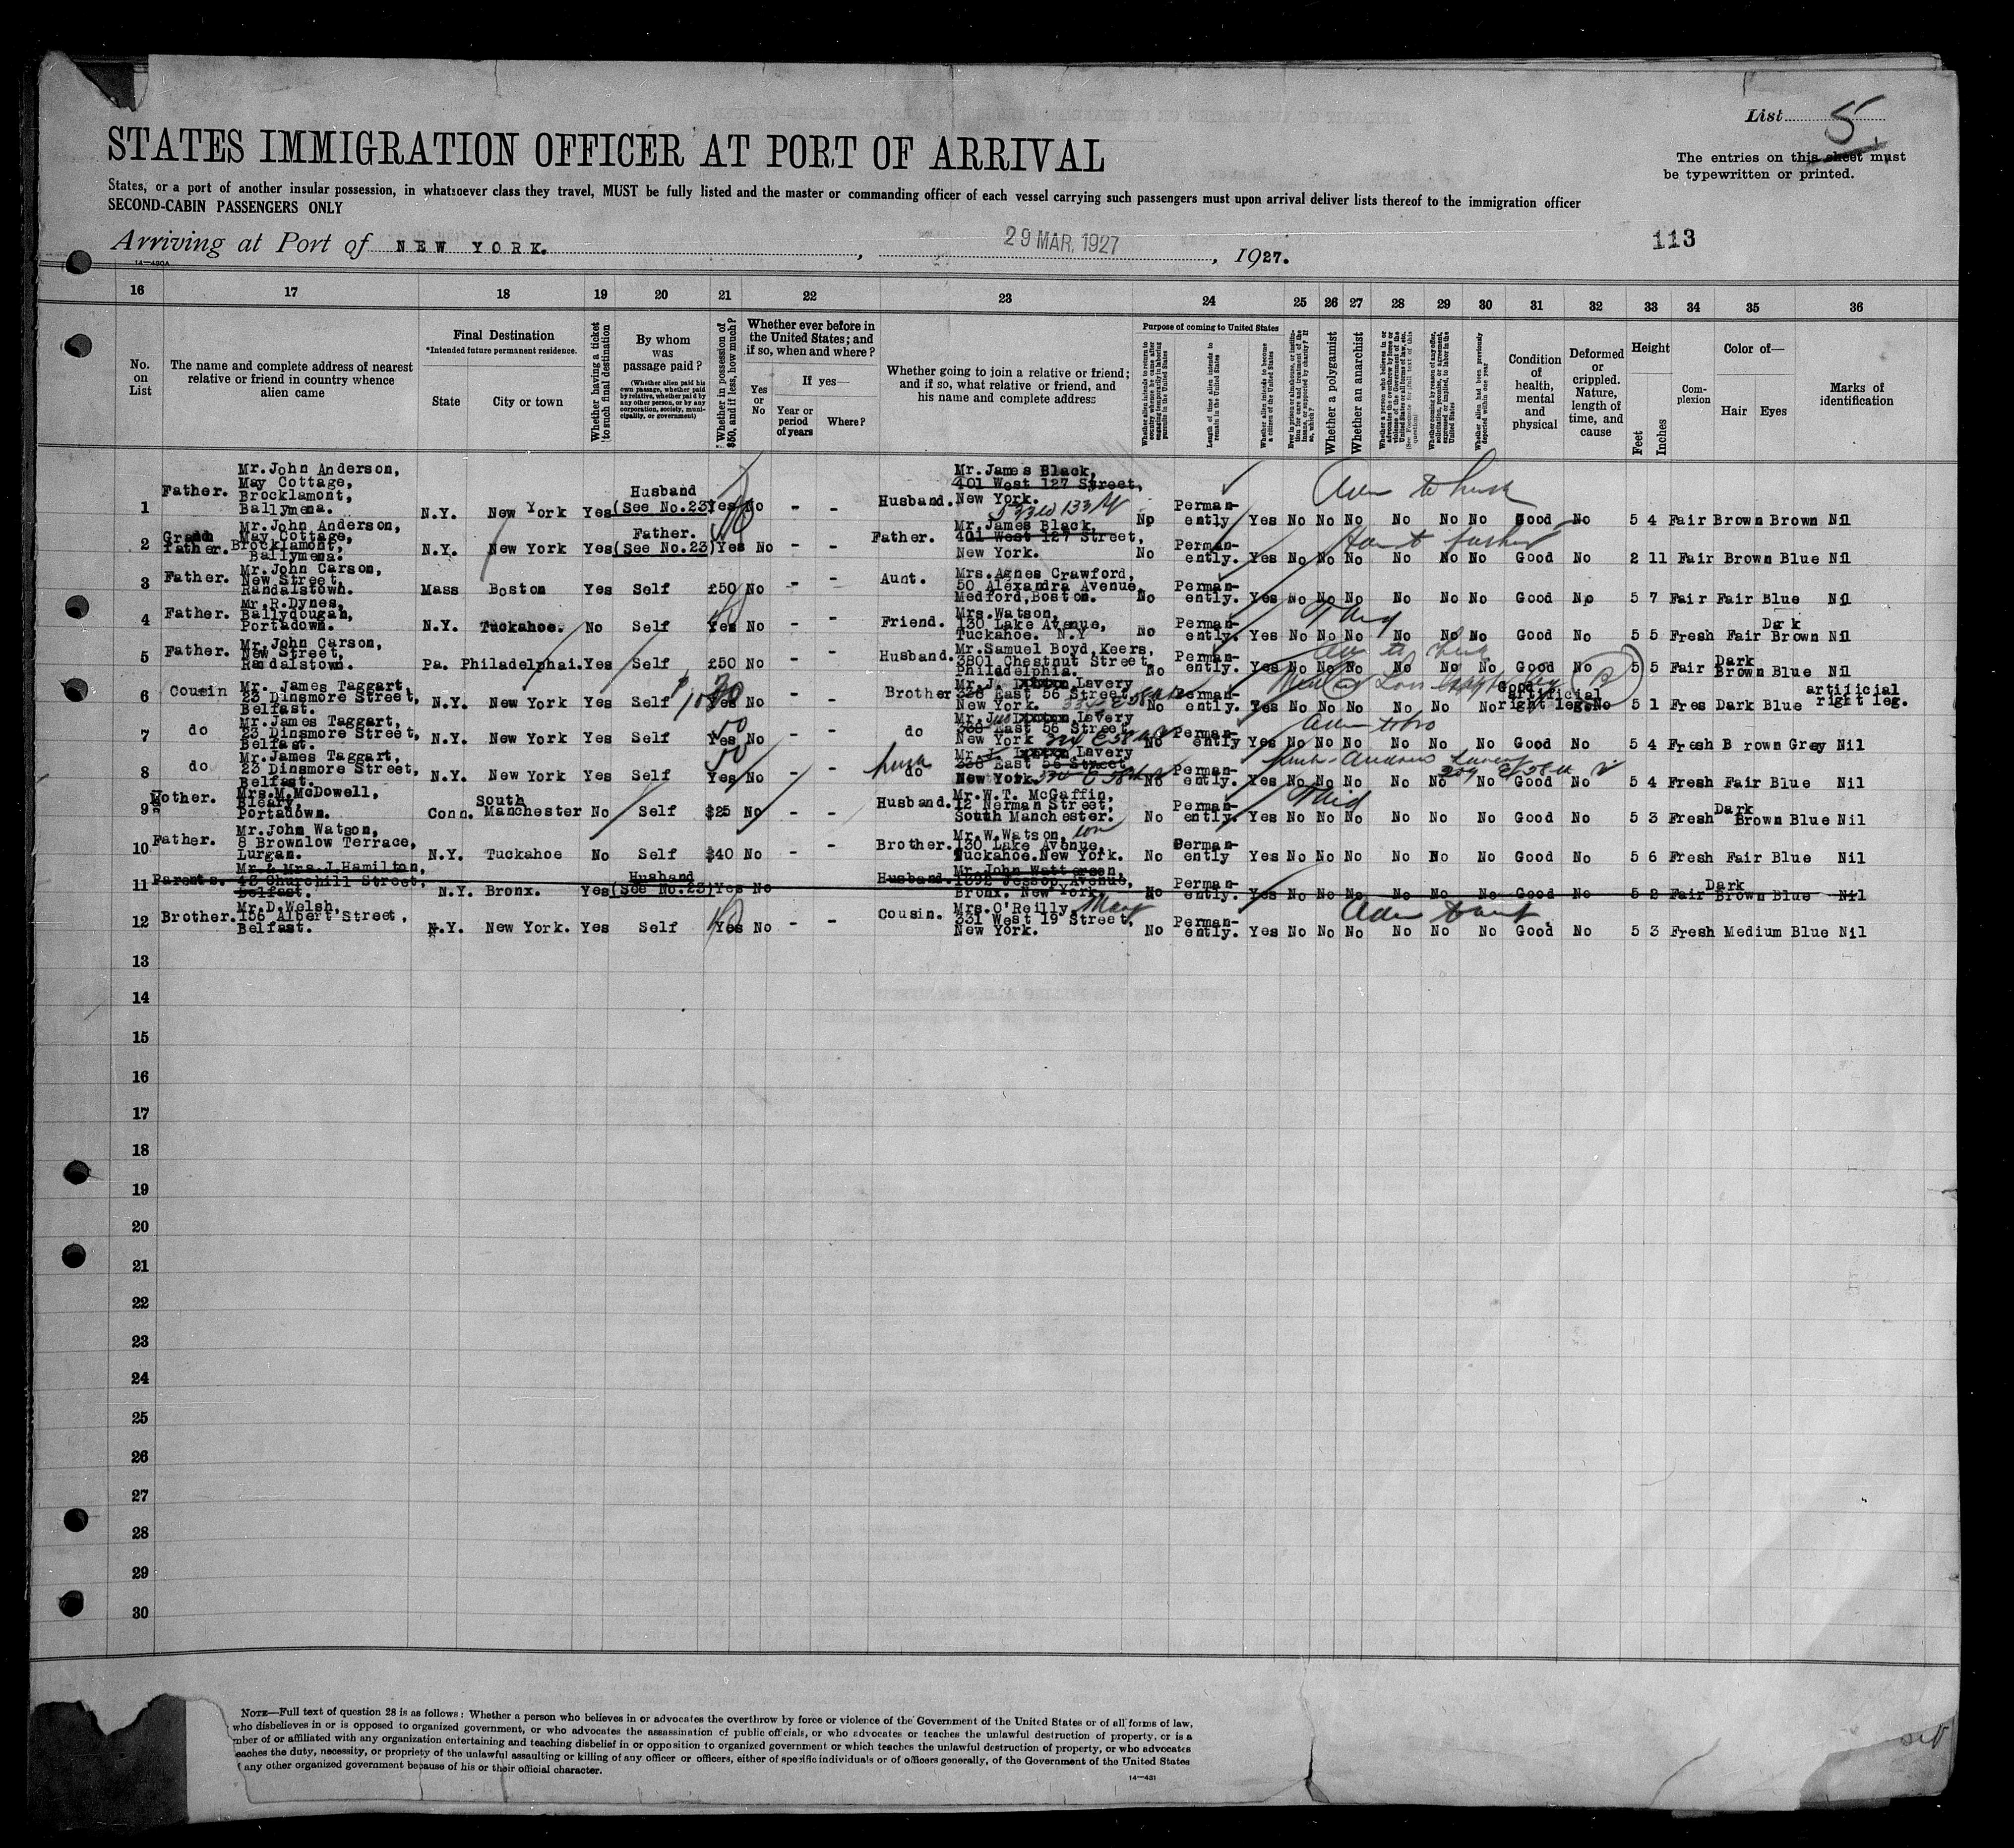 List 5
STATES IMMIGRATION OFFICER AT PORT OF ARRIVAL
The entries on this sheet must
be typewritten or printed.
States, or a port of another insular possession, in whatsoever class they travel, MUST be fully listed and the master or commanding officer of each vessel carrying such passengers must upon arrival deliver lists thereof to the immigration officer
SECOND-CABIN PASSENGERS ONLY
Arriving at Port of NEW YORK. , 29 MAR. 1927 , 1927. 113
14—430A
16 17 18 19 20 21 22 23 24 25 26 27 28 29 30 31 32 33 34 35 36
No. on List
The name and complete address of nearest relative or friend in country whence alien came
Final Destination
*Intended future permanent residence.
State
City or town
Whether having a ticket to such final destination
By whom was passage paid?
(Whether alien paid his own passage, whether paid by relative, whether paid by any other person, or by any corporation, society, municipality, or government)
Whether in possession of $50, and if less, how much?
Whether ever before in the United States; and if so, when and where?
Yes or No
If yes—
Year or period of years
Where?
Whether going to join a relative or friend; and if so, what relative or friend, and his name and complete address
Purpose of coming to United States
Whether alien intends to return to country whence he came after engaging temporarily in laboring pursuits in the United States
Length of time alien intends to remain in the United States
Whether alien intends to become a citizen of the United States
Ever in prison or almshouse, or institution for care and treatment of the insane, or supported by charity? If so, which?
Whether a polygamist
Whether an anarchist
Whether a person who believes in or advocates the overthrow by force or violence of the Government of the United States or all forms of law, etc. (See Footnote for full text of this question)
Whether coming by reason of any offer, solicitation, promise, or agreement, expressed or implied, to labor in the United States
Whether alien had been previously deported within one year
Condition of health, mental and physical
Deformed or crippled. Nature, length of time, and cause
Height
Feet
Inches
Complexion
Color of—
Hair
Eyes
Marks of identification
1 Father. Mr. John Anderson, May Cottage, Brocklamont, Ballymena. N.Y. New York Yes Husband (See No.23) Yes No - - Husband. Mr. James Black, 401 West 127 Street, New York. 533 W 133 No Permanently Yes No No No No No No Good No 5 4 Fair Brown Brown Nil
2 Grand Father. Mr. John Anderson, May Cottage, Brocklamont, Ballymena. N.Y. New York Yes Father. (See No.23) Yes No - - Father. Mr. James Black, 401 West 127 Street, New York. No Permanently. Yes No No No No No No Good No 2 11 Fair Brown Blue Nil
3 Father. Mr. John Carson, New Street, Randalstown. Mass Boston Yes Self £50 No - - Aunt. Mrs. Agnes Crawford, 50 Alexandra Avenue, Medford, Boston. No Permanently. Yes No No No No No No Good No 5 7 Fair Fair Blue Nil
4 Father. Mr. R. Dynes, Ballydougan, Portadown. N.Y. Tuckahoe. No Self Yes No - - Friend. Mrs. Watson, 130 Lake Avenue, Tuckahoe. N.Y No Permanently. Yes No No No No No No Good No 5 5 Fresh Fair Dark Brown Nil
5 Father. Mr. John Carson, New Street, Randalstown. Pa. Philadelphai. Yes Self £50 No - - Husband. Mr. Samuel Boyd Keers, 3801 Chestnut Street, Philadelphia. No Permanently. Yes No No No No No No Good No 5 5 Fair Dark Brown Blue Nil
6 Cousin Mr. James Taggart, 23 Dinsmore Street, Belfast. N.Y. New York Yes Self Yes No - - Brother Mr. J. Lavery 328 East 56 Street, New York. No Permanently. Yes No No No No No No Good artificial right leg. No 5 1 Fres Dark Blue artificial right leg.
7 do Mr. James Taggart, 23 Dinsmore Street, Belfast. N.Y. New York Yes Self 50 Yes No - - do Mr. Lavery East 56 Street, New York No Permanently Yes No No No No No No Good No 5 4 Fresh B rown Grey Nil
8 do Mr. James Taggart, 23 Dinsmore Street, Belfast. N.Y. New York Yes Self 50 Yes No - - do Mr. J. Lavery East 56 Street New York. No Permanently. Yes No No No No No No Good No 5 4 Fresh Fair Blue Nil
9 Mother. Mrs. M. McDowell, Bleary, Portadown. Conn. South Manchester No Self $25 No - - Husband. Mr. W.T. McGaffin, 12 Nerman Street, South Manchester. No Permanently. Yes No No No No No No Good No 5 3 Fresh Dark Brown Blue Nil
10 Father. Mr. John Watson, 8 Brownlow Terrace, Lurgan. N.Y. Tuckahoe No Self $40 No - - Brother. Mr. W. Watson, 130 Lake Avenue, Tuckahoe. New York. No Permanently Yes No No No No No No Good No 5 6 Fresh Fair Blue Nil
11 Parents. Mr. & Mrs. J. Hamilton, 43 Churchill Street, Belfast. N.Y. Bronx. Yes Husband (See No.23) Yes No - - Husband. Mr. John Watterson, 1392 Jessop Avenue, Bronx. New York. No Permanently. Yes No No No No No No Good No 5 2 Fair Dark Brown Blue Nil
12 Brother. Mr. D. Welsh, 156 Albert Street, Belfast. N.Y. New York. Yes Self Yes No - - Cousin. Mrs. O'Reilly, Mary 331 West 19 Street, New York. No Permanently. Yes No No No No No No Good No 5 3 Fresh Medium Blue Nil
13
14
15
16
17
18
19
20
21
22
23
24
25
26
27
28
29
30
NOTE—Full text of question 28 is as follows: Whether a person who believes in or advocates the overthrow by force or violence of the Government of the United States or of all forms of law,
who disbelieves in or is opposed to organized government, or who advocates the assassination of public officials, or who advocates or teaches the unlawful destruction of property, or is a
mber of or affiliated with any organization entertaining and teaching disbelief in or opposition to organized government or which teaches the unlawful destruction of property, or who advocates
eaches the duty, necessity, or propriety of the unlawful assaulting or killing of any officer or officers, either of specific individuals or of officers generally, of the Government of the United States
any other organized government because of his or their official character.
14—431